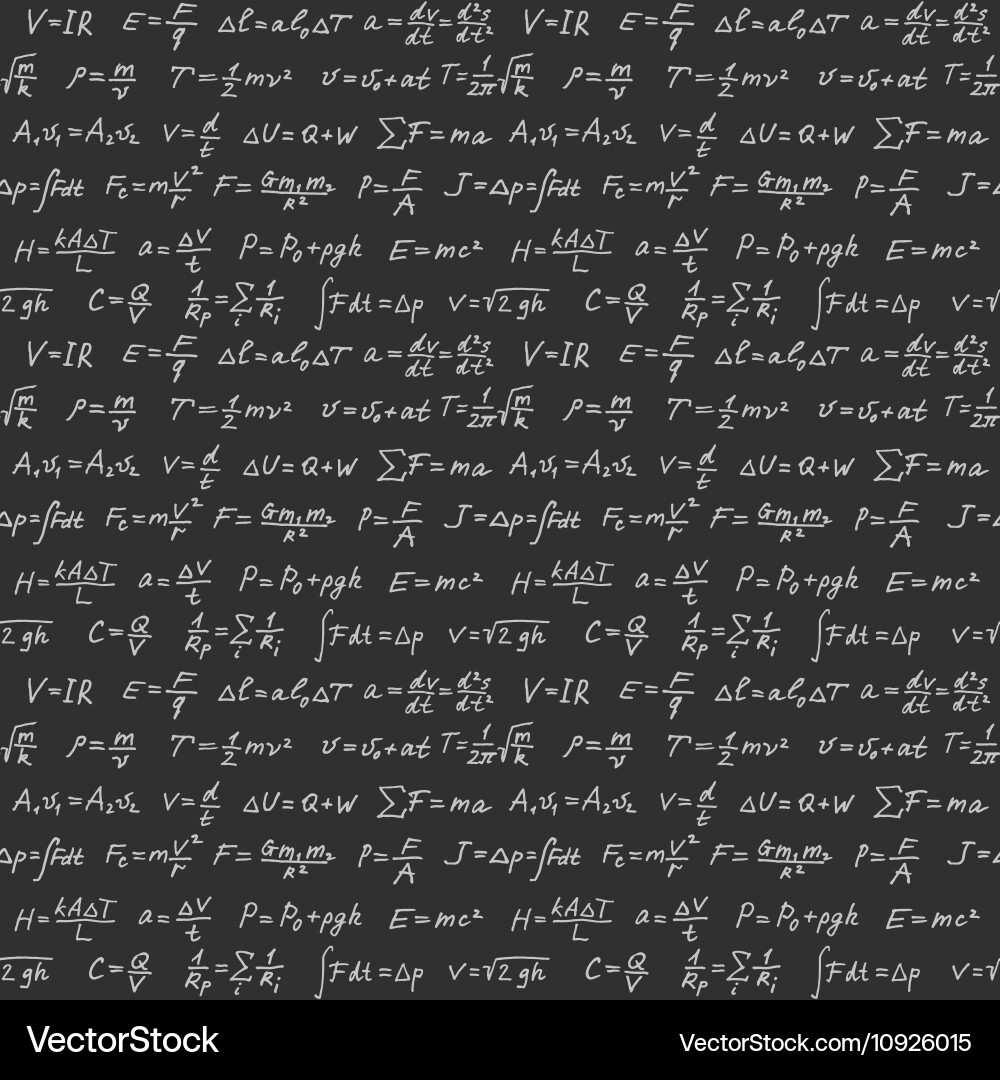 V=IR E=F/q Δℓ=aℓ₀ΔT a=dv/dt=d²s/dt² V=IR E=F/q Δℓ=aℓ₀ΔT a=dv/dt=d²s/dt²
√m/k ρ=m/v T=1/2mv² v=v₀+at T=1/2π√m/k ρ=m/v T=1/2mv² v=v₀+at T=1/2π
A₁v₁=A₂v₂ V=d/t ΔU=Q+W ∑F=ma A₁v₁=A₂v₂ V=d/t ΔU=Q+W ∑F=ma
Δp=∫Fdt Fc=mV²/r F=Gm₁m₂/R² P=F/A J=Δp=∫Fdt Fc=mV²/r F=Gm₁m₂/R² P=F/A J=Δ
H=kAΔT/L a=ΔV/t P=P₀+ρgh E=mc² H=kAΔT/L a=ΔV/t P=P₀+ρgh E=mc²
2gh C=Q/V 1/Rp=∑i 1/Ri ∫Fdt=Δp V=√2gh C=Q/V 1/Rp=∑i 1/Ri ∫Fdt=Δp V=√
V=IR E=F/q Δℓ=aℓ₀ΔT a=dv/dt=d²s/dt² V=IR E=F/q Δℓ=aℓ₀ΔT a=dv/dt=d²s/dt²
√m/k ρ=m/v T=1/2mv² v=v₀+at T=1/2π√m/k ρ=m/v T=1/2mv² v=v₀+at T=1/2π
A₁v₁=A₂v₂ V=d/t ΔU=Q+W ∑F=ma A₁v₁=A₂v₂ V=d/t ΔU=Q+W ∑F=ma
Δp=∫Fdt Fc=mV²/r F=Gm₁m₂/R² P=F/A J=Δp=∫Fdt Fc=mV²/r F=Gm₁m₂/R² P=F/A J=Δ
H=kAΔT/L a=ΔV/t P=P₀+ρgh E=mc² H=kAΔT/L a=ΔV/t P=P₀+ρgh E=mc²
2gh C=Q/V 1/Rp=∑i 1/Ri ∫Fdt=Δp V=√2gh C=Q/V 1/Rp=∑i 1/Ri ∫Fdt=Δp V=√
V=IR E=F/q Δℓ=aℓ₀ΔT a=dv/dt=d²s/dt² V=IR E=F/q Δℓ=aℓ₀ΔT a=dv/dt=d²s/dt²
√m/k ρ=m/v T=1/2mv² v=v₀+at T=1/2π√m/k ρ=m/v T=1/2mv² v=v₀+at T=1/2π
A₁v₁=A₂v₂ V=d/t ΔU=Q+W ∑F=ma A₁v₁=A₂v₂ V=d/t ΔU=Q+W ∑F=ma
Δp=∫Fdt Fc=mV²/r F=Gm₁m₂/R² P=F/A J=Δp=∫Fdt Fc=mV²/r F=Gm₁m₂/R² P=F/A J=Δ
H=kAΔT/L a=ΔV/t P=P₀+ρgh E=mc² H=kAΔT/L a=ΔV/t P=P₀+ρgh E=mc²
2gh C=Q/V 1/Rp=∑i 1/Ri ∫Fdt=Δp V=√2gh C=Q/V 1/Rp=∑i 1/Ri ∫Fdt=Δp V=√
VectorStock VectorStock.com/10926015